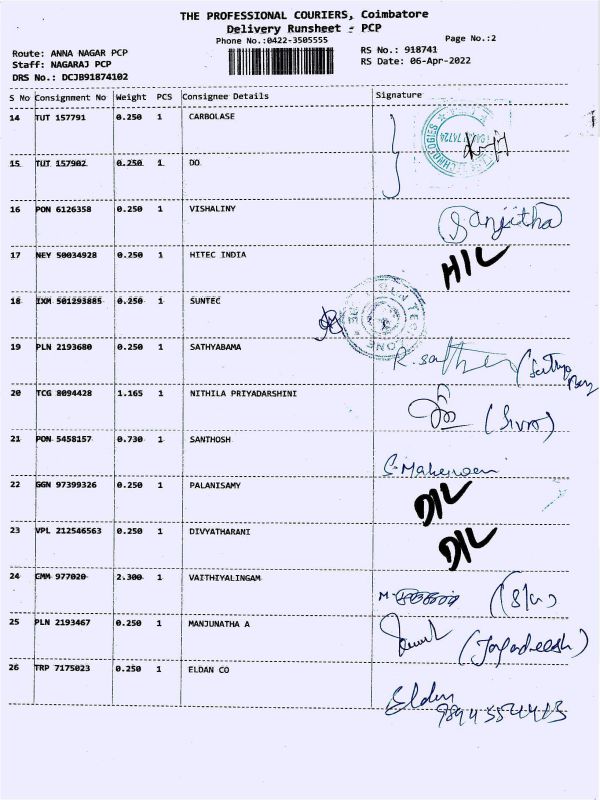 THE PROFESSIONAL COURIERS, Coimbatore
Delivery Runsheet - PCP
Phone No.:0422-3505555
Page No.:2
Route: ANNA NAGAR PCP
RS No.: 918741
Staff: NAGARAJ PCP
RS Date: 06-Apr-2022
DRS No.: DCJB91874102
S No Consignment No Weight PCS Consignee Details Signature
14 TUT 157791 0.250 1 CARBOLASE
15 TUT 157902 0.250 1 DO
16 PON 6126358 0.250 1 VISHALINY
Sanjitha
17 NEY 50034928 0.250 1 HITEC INDIA
H/L
18 IXM 501293885 0.250 1 SUNTEC
19 PLN 2193680 0.250 1 SATHYABAMA
20 TCG 8094428 1.165 1 NITHILA PRIYADARSHINI
(Siva)
21 PON 5458157 0.730 1 SANTHOSH
22 GGN 97399326 0.250 1 PALANISAMY
D/L
23 VPL 212546563 0.250 1 DIVYATHARANI
D/L
24 CMM 977020 2.300 1 VAITHIYALINGAM
25 PLN 2193467 0.250 1 MANJUNATHA A
(Jagadeesh)
26 TRP 7175023 0.250 1 ELDAN CO